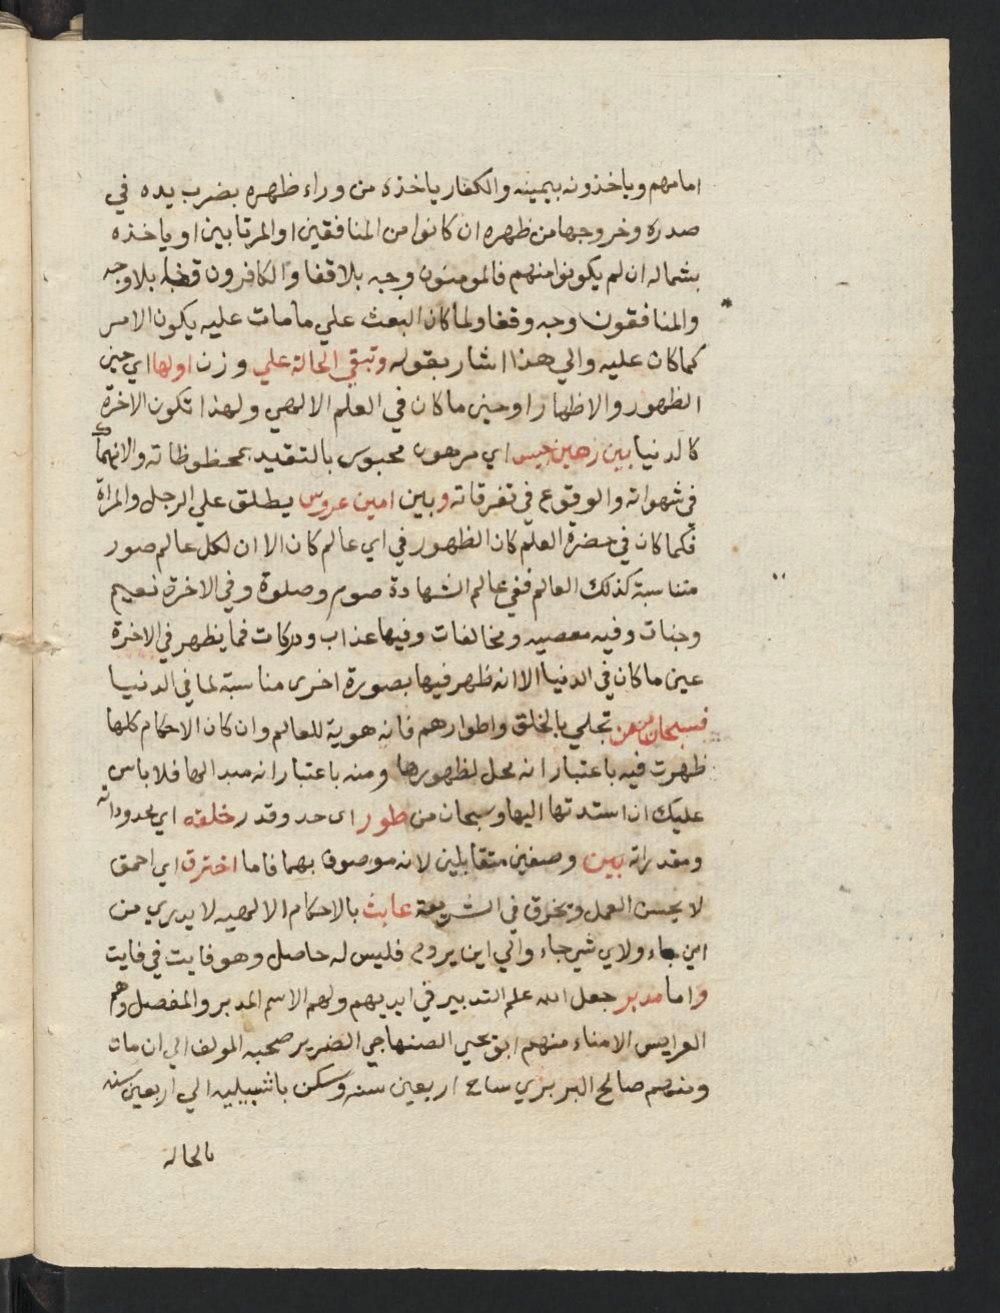 امامهم وياخذونه بيمينه والكفار ياخذه من وراء ظهره بضرب يده في
صدره وخروجها من ظهره ان كانوا من المنافقين او المرتابين او ياخذه
بشماله ان لم يكونوا منهم فالمومنون وجه بلا قفا والكافرون قفا بلا وجه
والمنافقون وجه وقفا ولما كان البعث علي ما مات عليه يكون الامر
كما كان عليه والي هذا اشار بقوله وتبقي الحالة علي وزن اولها اي حين
الظهور والاظهار او حين ما كان في العلم الالهي ولهذا تكون الاخرة
كالدنيا بين رهين حبيس اي مرهون محبوس بالتقيد بمحظوظاته والانهماك
في شهواته والوقوع في تفرقاته وبين امين عروس يطلق علي الرجل والمراة
فكما كان في حضرة العلم كان الظهور في اي عالم كان الا ان لكل عالم صور
متناسبة كذلك العالم ففي عالم الشهادة صوم وصلوة وفي الاخرة نعيم
وجنات وفيه معصيه ومخالفات وفيها عذاب ودركات فما يظهر في الاخرة
عين ما كان في الدنيا الا انه ظهر فيها بصورة اخرى مناسبة لما في الدنيا
فسبحان من تجلي بالخلق واطوارهم فانه هوية للعالم وان كان الاحكام كلها
ظهرت فيه باعتبار انه محل لظهورها ومنه باعتبار انه مبدالها فلا باس
عليك ان اسندتها اليها وسبحان من طور اى حد وقدر خلقه اي محدوداته
ومقدراته بين وصفين متقابلين لانه موصوف بهما فاما اخرق اي احمق
لا يحسن العمل وتخرق في الشريعة عابث بالاحكام الالهيه لا يدري من
اين جاء ولاي شي جاء والي اين يروم فليس له حاصل وهو فايت في فايت
واما مدبر جعل الله علم التدبير في ايديهم ولهم الاسم المدبر والمفصل وهم
العرايس الامناء منهم ابو يحيي الصنهاجي الضرير صحبه المولف الي ان مات
ومنهم صالح البربري ساح اربعين سنه وسكن باشبيليه الي اربعين سنه
بالحاله